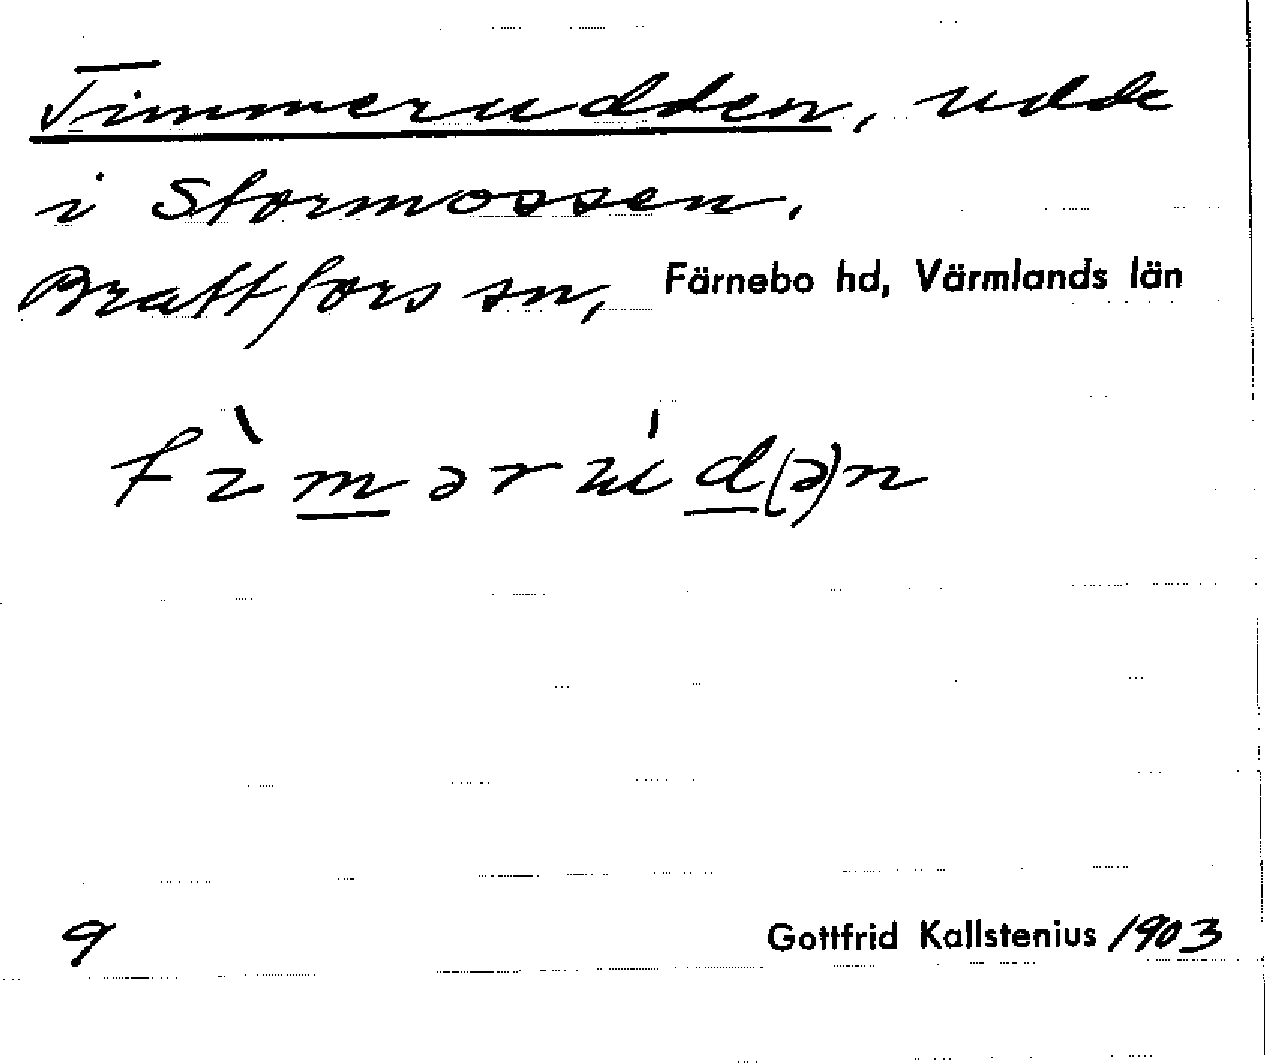 Timmerudden, udde
i Stormossen,
Brattfors sn, Färnebo hd, Värmlands län
tìmərúd(ə)n
9
Gottfrid Kallstenius 1903